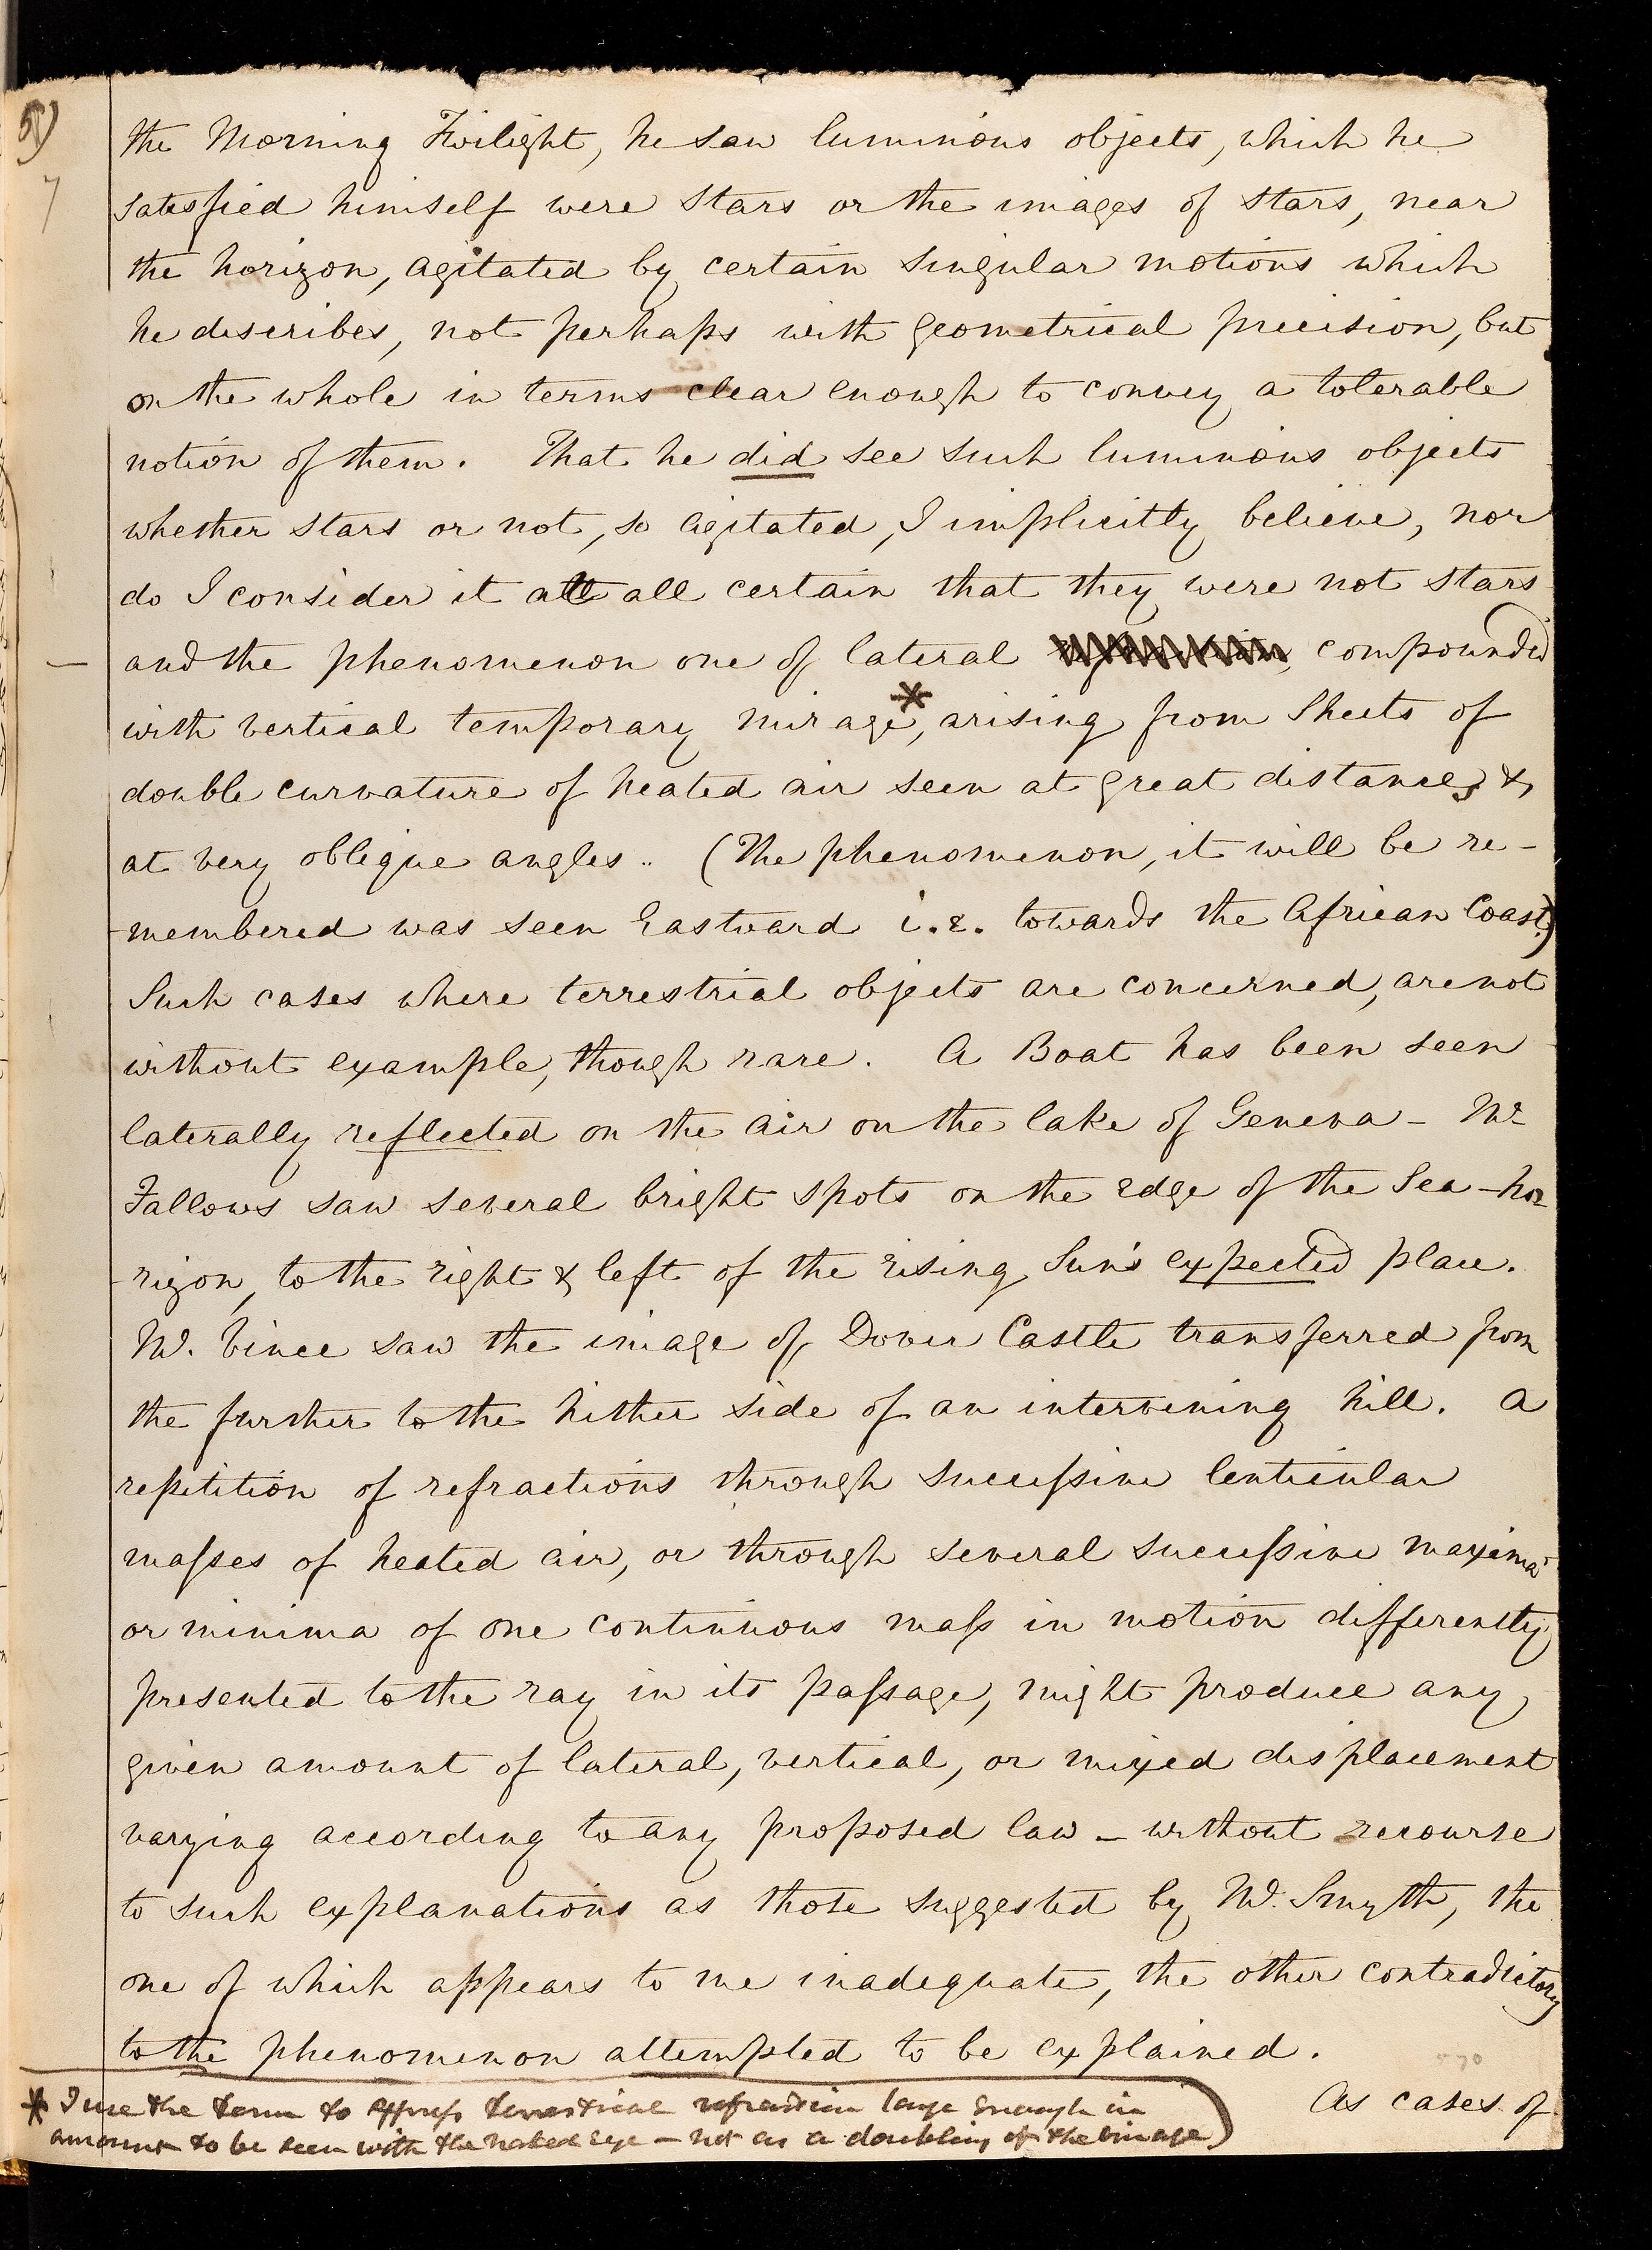 5)
7
the Morning Twilight, he saw luminous objects, which he
satisfied himself were stars or the images of stars, near
the horizon, agitated by certain singular motions which
he describes, not perhaps with geometrical precision, but
on the whole in terms clear enough to convey a tolerable
notion of them. That he did see such luminous objects
whether stars or not, so agitated, I implicitly believe, nor
do I consider it at all certain that they were not stars
and the phenomenon one of lateral compounded
with vertical temporary mirage*, arising from Sheets of
double curvature of heated air seen at great distances &
at very oblique angles.. (The phenomenon, it will be re-
-membered was seen Eastward i.e. towards the African Coast.)
Such cases where terrestrial objects are concerned, are not
without example, though rare. A Boat has been seen
laterally reflected on the air on the lake of Geneva - Mr
Fallows saw several bright spots on the edge of the Sea-ho-
-rizon, to the right & left of the rising Sun's expected place.
Mr. Vince saw the image of Dover Castle transferred from
the further to the hither side of an intervening hill. A
repitition of refractions through successive lenticular
masses of heated air, or through several successive maxima
or minima of one continuous mass in motion differently
presented to the ray in its passage, might produce any
given amount of lateral, vertical, or mixed displacement
varying according to any proposed law - without recourse
to such explanations as those suggested by Mr. Smyth, the
one of which appears to me inadequate, the other contradictory
to the phenomenon attempted to be explained.
As cases of
* I use the term to express terrestrial refraction large enough in
amount to be seen with the naked eye - not as a doubling of the image)